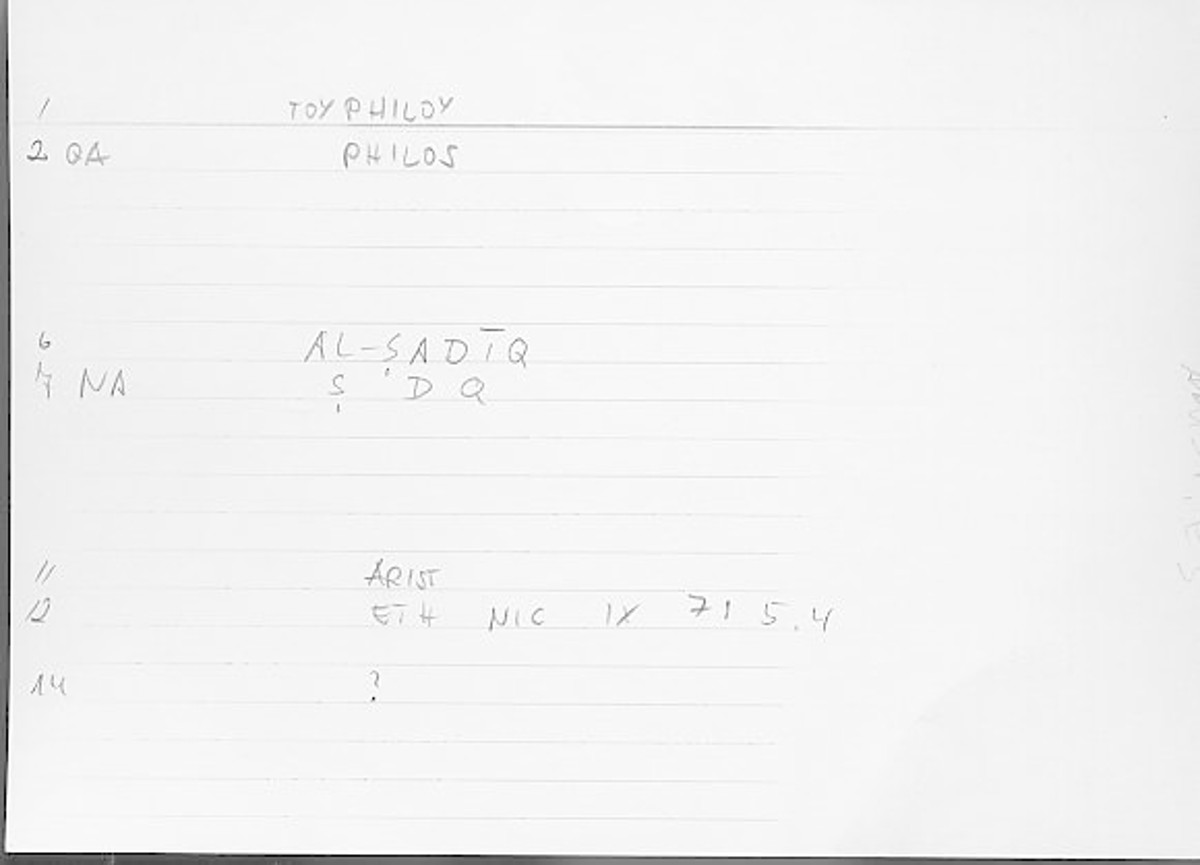 1 TOY PHILOY
2 QA PHILOS
6 AL-ṢADĪQ
7 NA Ṣ D Q
11 ARIST
12 ETH NIC IX 71 5.4
14 ?